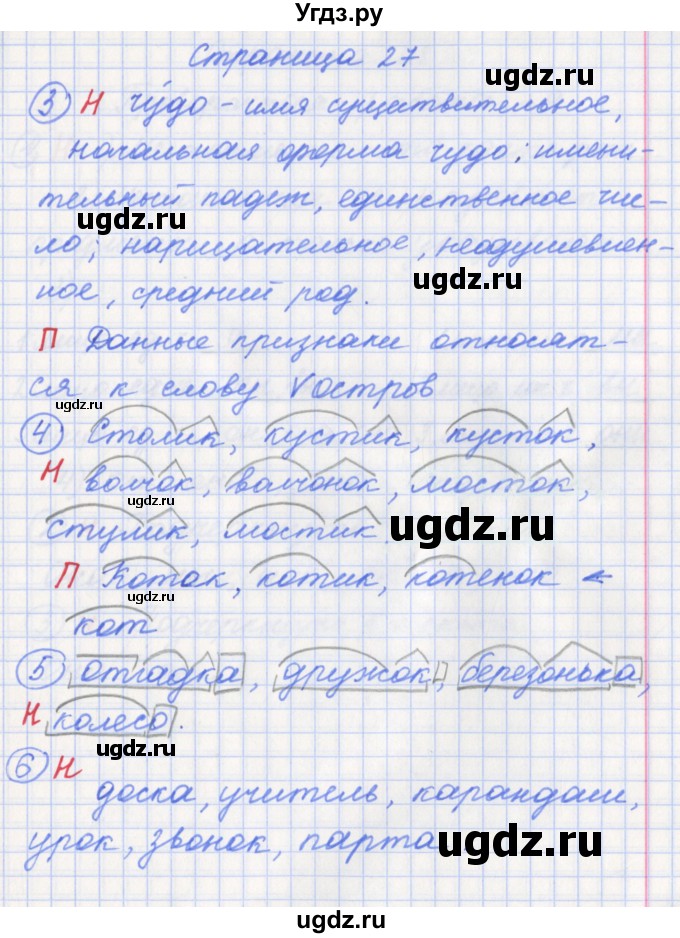 Угдз.ру
Страница 27
ugdz.ru
③ Н чу́до - имя существительное,
начальная форма чудо; имени-
тельный падеж, единственное чис-
ugdz.ru
ло; нарицательное, неодушевлен-
ugdz.ru
ное, средний род.
П Данные признаки относят-
ся к слову остров
ugdz.ru
④ Столик, кустик, кусток,
Н волчок, волчонок, мосток,
ugdz.ru
стулик, мостик.
ugdz.ru
П Коток, котик, котенок ←
ugdz.ru
кот
⑤ отгадка, дружок, березонька,
Н колесо.
ugdz.ru
⑥ Н
доска, учитель, карандаш,
урок, звонок, парта
ugdz.ru
ugdz.ru